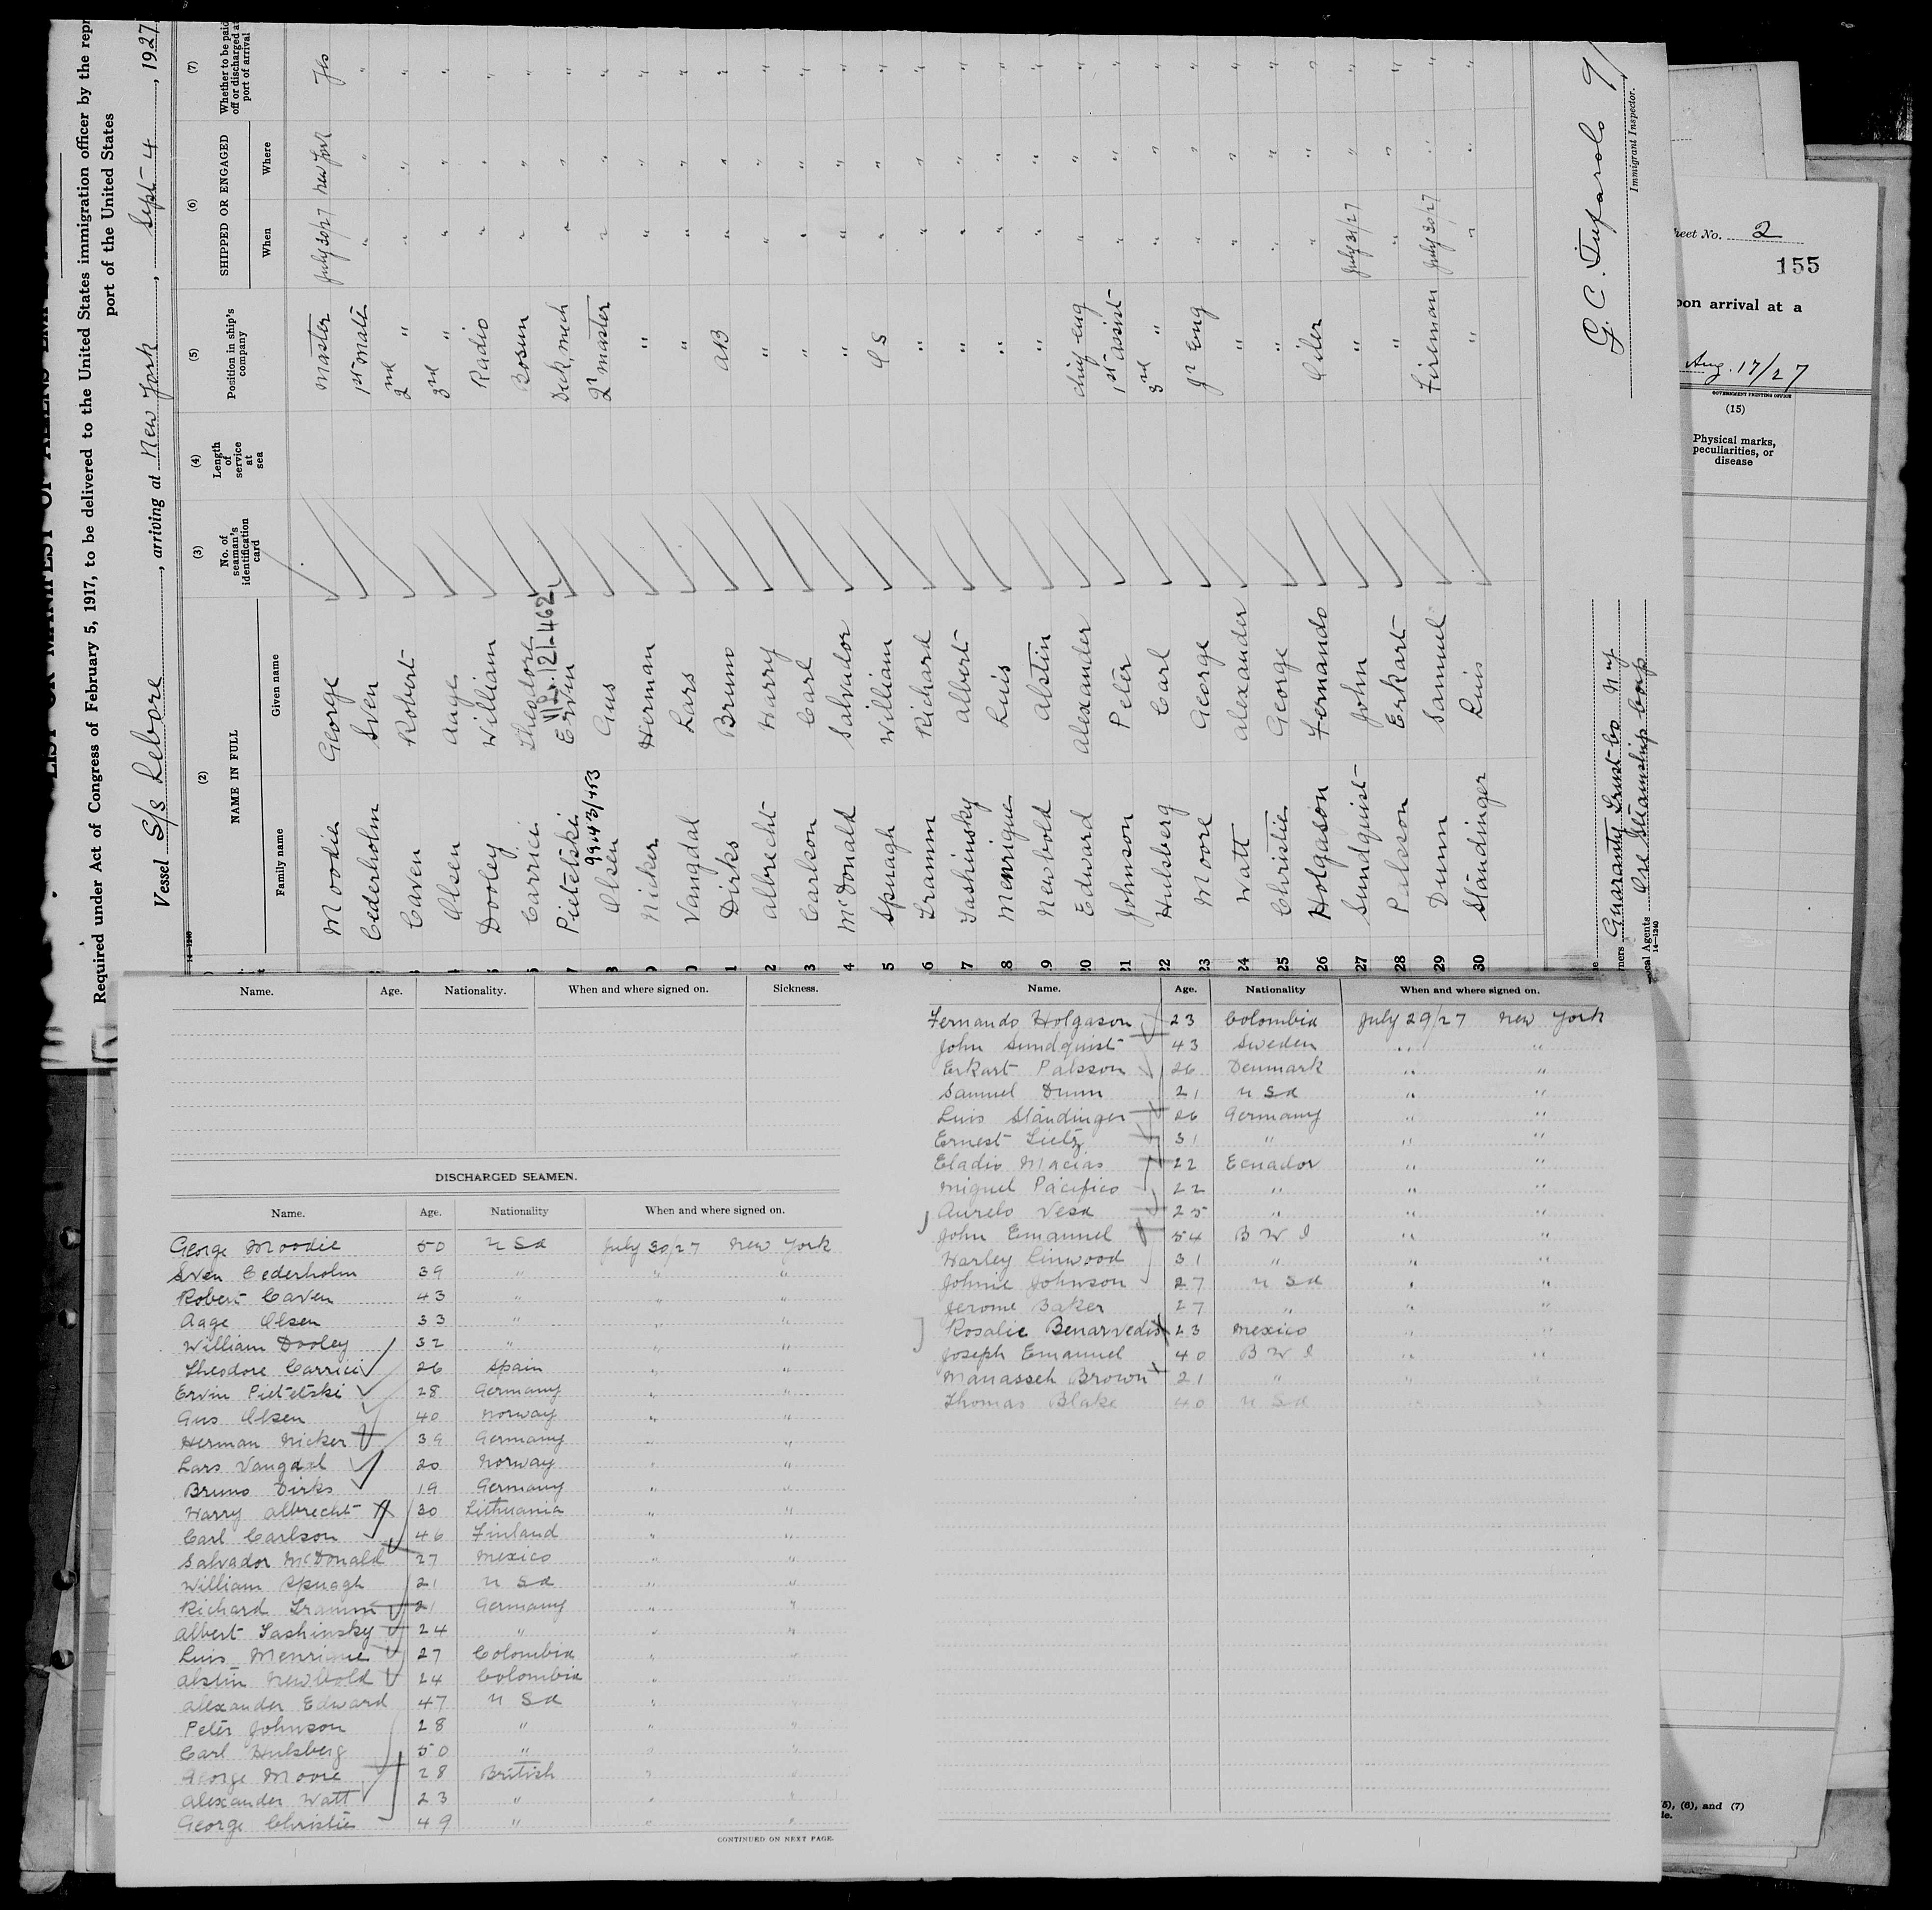 LIST OR MANIFEST OF ALIENS EMP
Required under Act of Congress of February 5, 1917, to be delivered to the United States immigration officer by the repr
port of the United States
Vessel S/S Lebore, arriving at New York, Sept 4, 1927
(2) NAME IN FULL
Family name Given name
(3) No. of seaman's identification card
(4) Length of service at sea
(5) Position in ship's company
(6) SHIPPED OR ENGAGED
When Where
(7) Whether to be paid off or discharged at port of arrival
14—1240
Moodie George Master July 30/27 New York Yes
Cederholm Sven 1st Mate " " "
Caven Robert 2nd " " " "
Olsen Aage 3rd " " " "
Dooley William Radio " " "
Carrici Theodore Bosun " " "
V.L. 121-462
Pietetski Ervin Deck mech " " "
99643/453
8 Olsen Gus Qr master " " "
9 Nicker Herman " " " "
0 Vangdal Lars " " " "
1 Dirks Bruno AB " " "
2 Albrecht Harry " " " "
3 Carlson Carl " " " "
4 McDonald Salvador " " " "
5 Spuagh William OS " " "
6 Gramm Richard " " " "
7 Sashinsky Albert " " " "
18 Menrique Luis " " " "
19 Newbold Alstin " " " "
20 Edward Alexander Chief eng " " "
21 Johnson Peter 1st assist " " "
22 Hulsberg Carl 3rd " " " "
23 Moore George Jr Eng " " "
24 Watt Alexander " " " "
25 Christie George " " " "
26 Holgason Fernando Oiler " " "
27 Sundquist John " July 31/27 " "
28 Palsson Erkart " " " "
29 Dunn Samuel Fireman July 30/27 " "
30 Ständinger Luis " " " "
G. C.
Immigrant Inspector.
ners Guaranty Trust Co N Y
cal Agents Ore Steamship Corp
14—1240
heet No. 2
155
pon arrival at a
Aug. 17/27
GOVERNMENT PRINTING OFFICE
(15)
Physical marks, peculiarities, or disease
5), (6), and (7)
le.
Name. Age. Nationality. When and where signed on. Sickness.
DISCHARGED SEAMEN.
Name. Age. Nationality When and where signed on.
George Moodie 50 U S A July 30/27 New York
Sven Cederholm 39 " " "
Robert Caven 43 " " "
Aage Olsen 33 " " "
William Dooley 32 " " "
Theodore Carrici 26 Spain " "
Ervin Pietetski 28 Germany " "
Gus Olsen 40 Norway " "
Herman Nicker 39 Germany " "
Lars Vangdal 20 Norway " "
Bruno Dirks 19 Germany " "
Harry Albrecht 30 Lithuania " "
Carl Carlson 46 Finland " "
Salvador McDonald 27 Mexico " "
William Spuagh 21 U S A " "
Richard Gramm 21 Germany " "
Albert Sashinsky 24 " " "
Luis Menrique 27 Colombia " "
Alstin Newbold 24 Colombia " "
Alexander Edward 47 U S A " "
Peter Johnson 28 " " "
Carl Hulsberg 50 " " "
George Moore 28 British " "
Alexander Watt 23 " " "
George Christie 49 " " "
CONTINUED ON NEXT PAGE.
Name. Age. Nationality When and where signed on.
Fernando Holgason 23 Colombia July 29/27 New York
John Sundquist 43 Sweden " "
Erkart Palsson 26 Denmark " "
Samuel Dunn 21 U S A " "
Luis Ständinger 26 Germany " "
Ernest Lietz 31 " " "
Eladio Macias 22 Ecuador " "
Miguel Pacifico 22 " " "
Aurelo Vesa 25 " " "
John Emanuel 54 B W I " "
Harley Linwood 31 " " "
Johnie Johnson 27 U S A " "
Jerome Baker 27 " " "
Rosalie Benarvedis 23 Mexico " "
Joseph Emanuel 40 B W I " "
Manasseh Brown 21 " " "
Thomas Blake 40 U S A " "